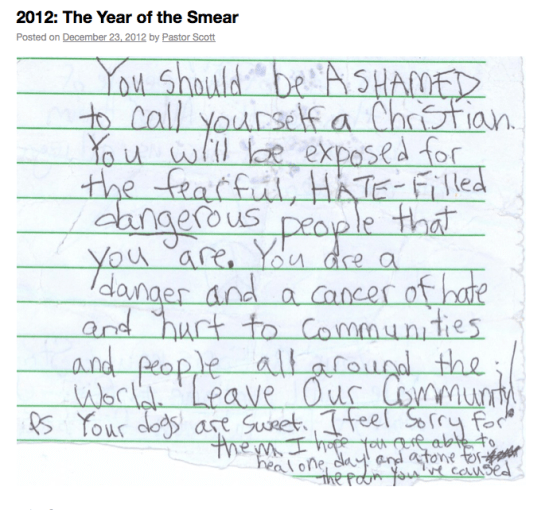 2012: The Year of the Smear
Posted on December 23, 2012 by Pastor Scott
You should be ASHAMED
to call yourself a Christian.
You will be exposed for
the fearful, HATE-Filled
dangerous people that
you are. You are a
danger and a cancer of hate
and hurt to Communities
and people all around the
World. Leave Our Community!
PS Your dogs are sweet. I feel sorry for
them. I hope you are able to
heal one day and atone for
the pain you've caused